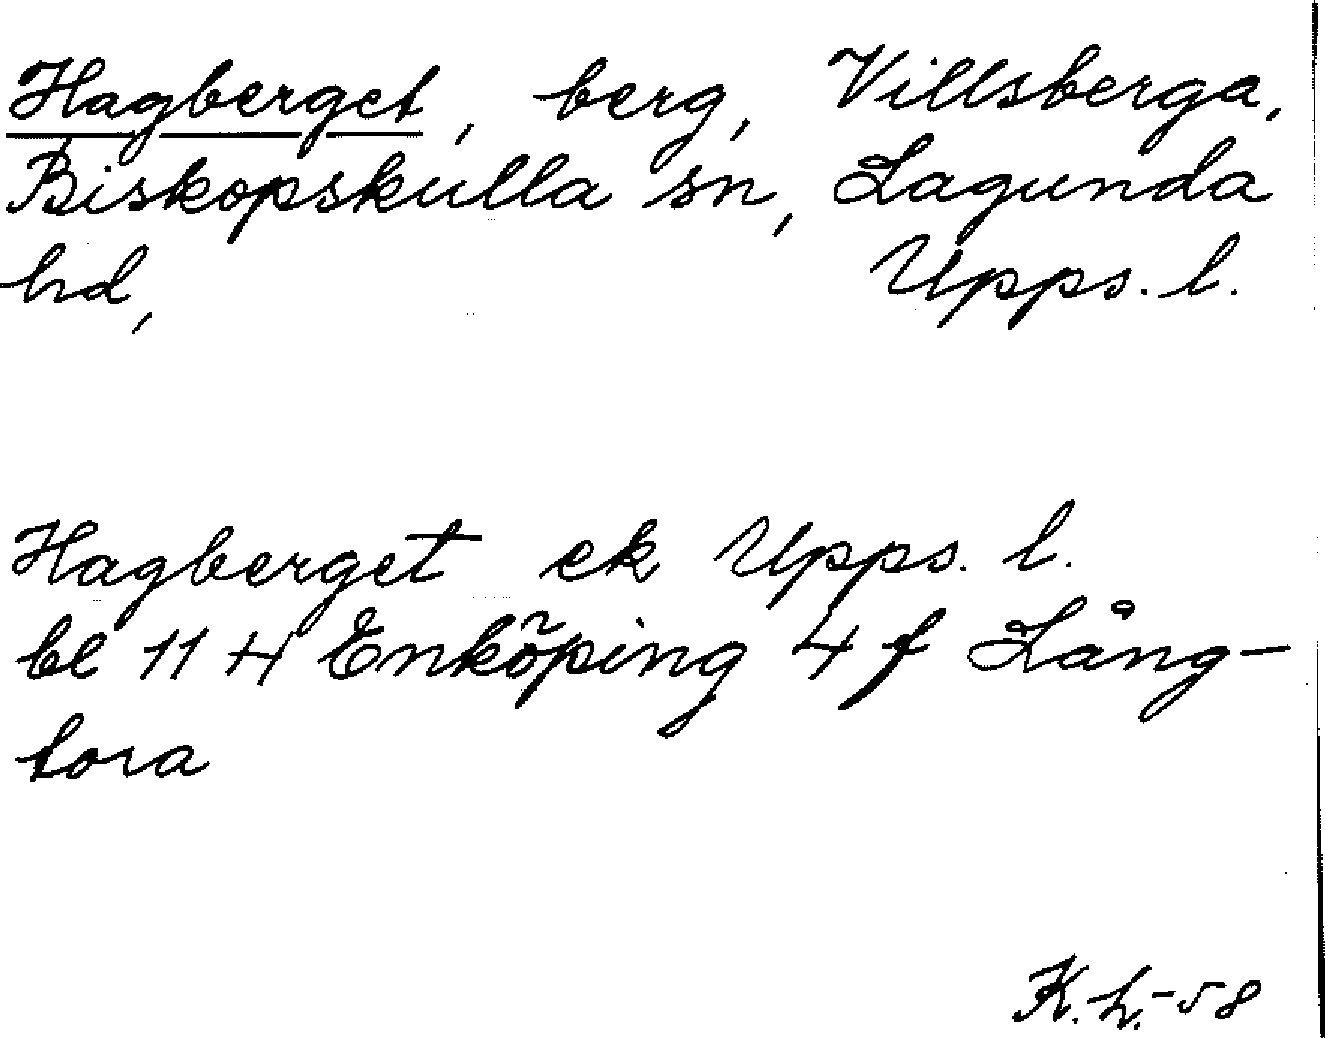 Hagberget, berg, Villsberga,
Biskopskulla sn, Lagunda
hd, Upps. l.
Hagberget ek Upps. l.
bl 11 H Enköping 4 f Lång-
tora
K. L. -58